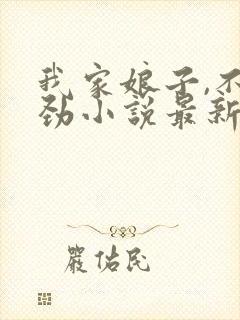 我家娘子,不
劲小说最新
严佑民